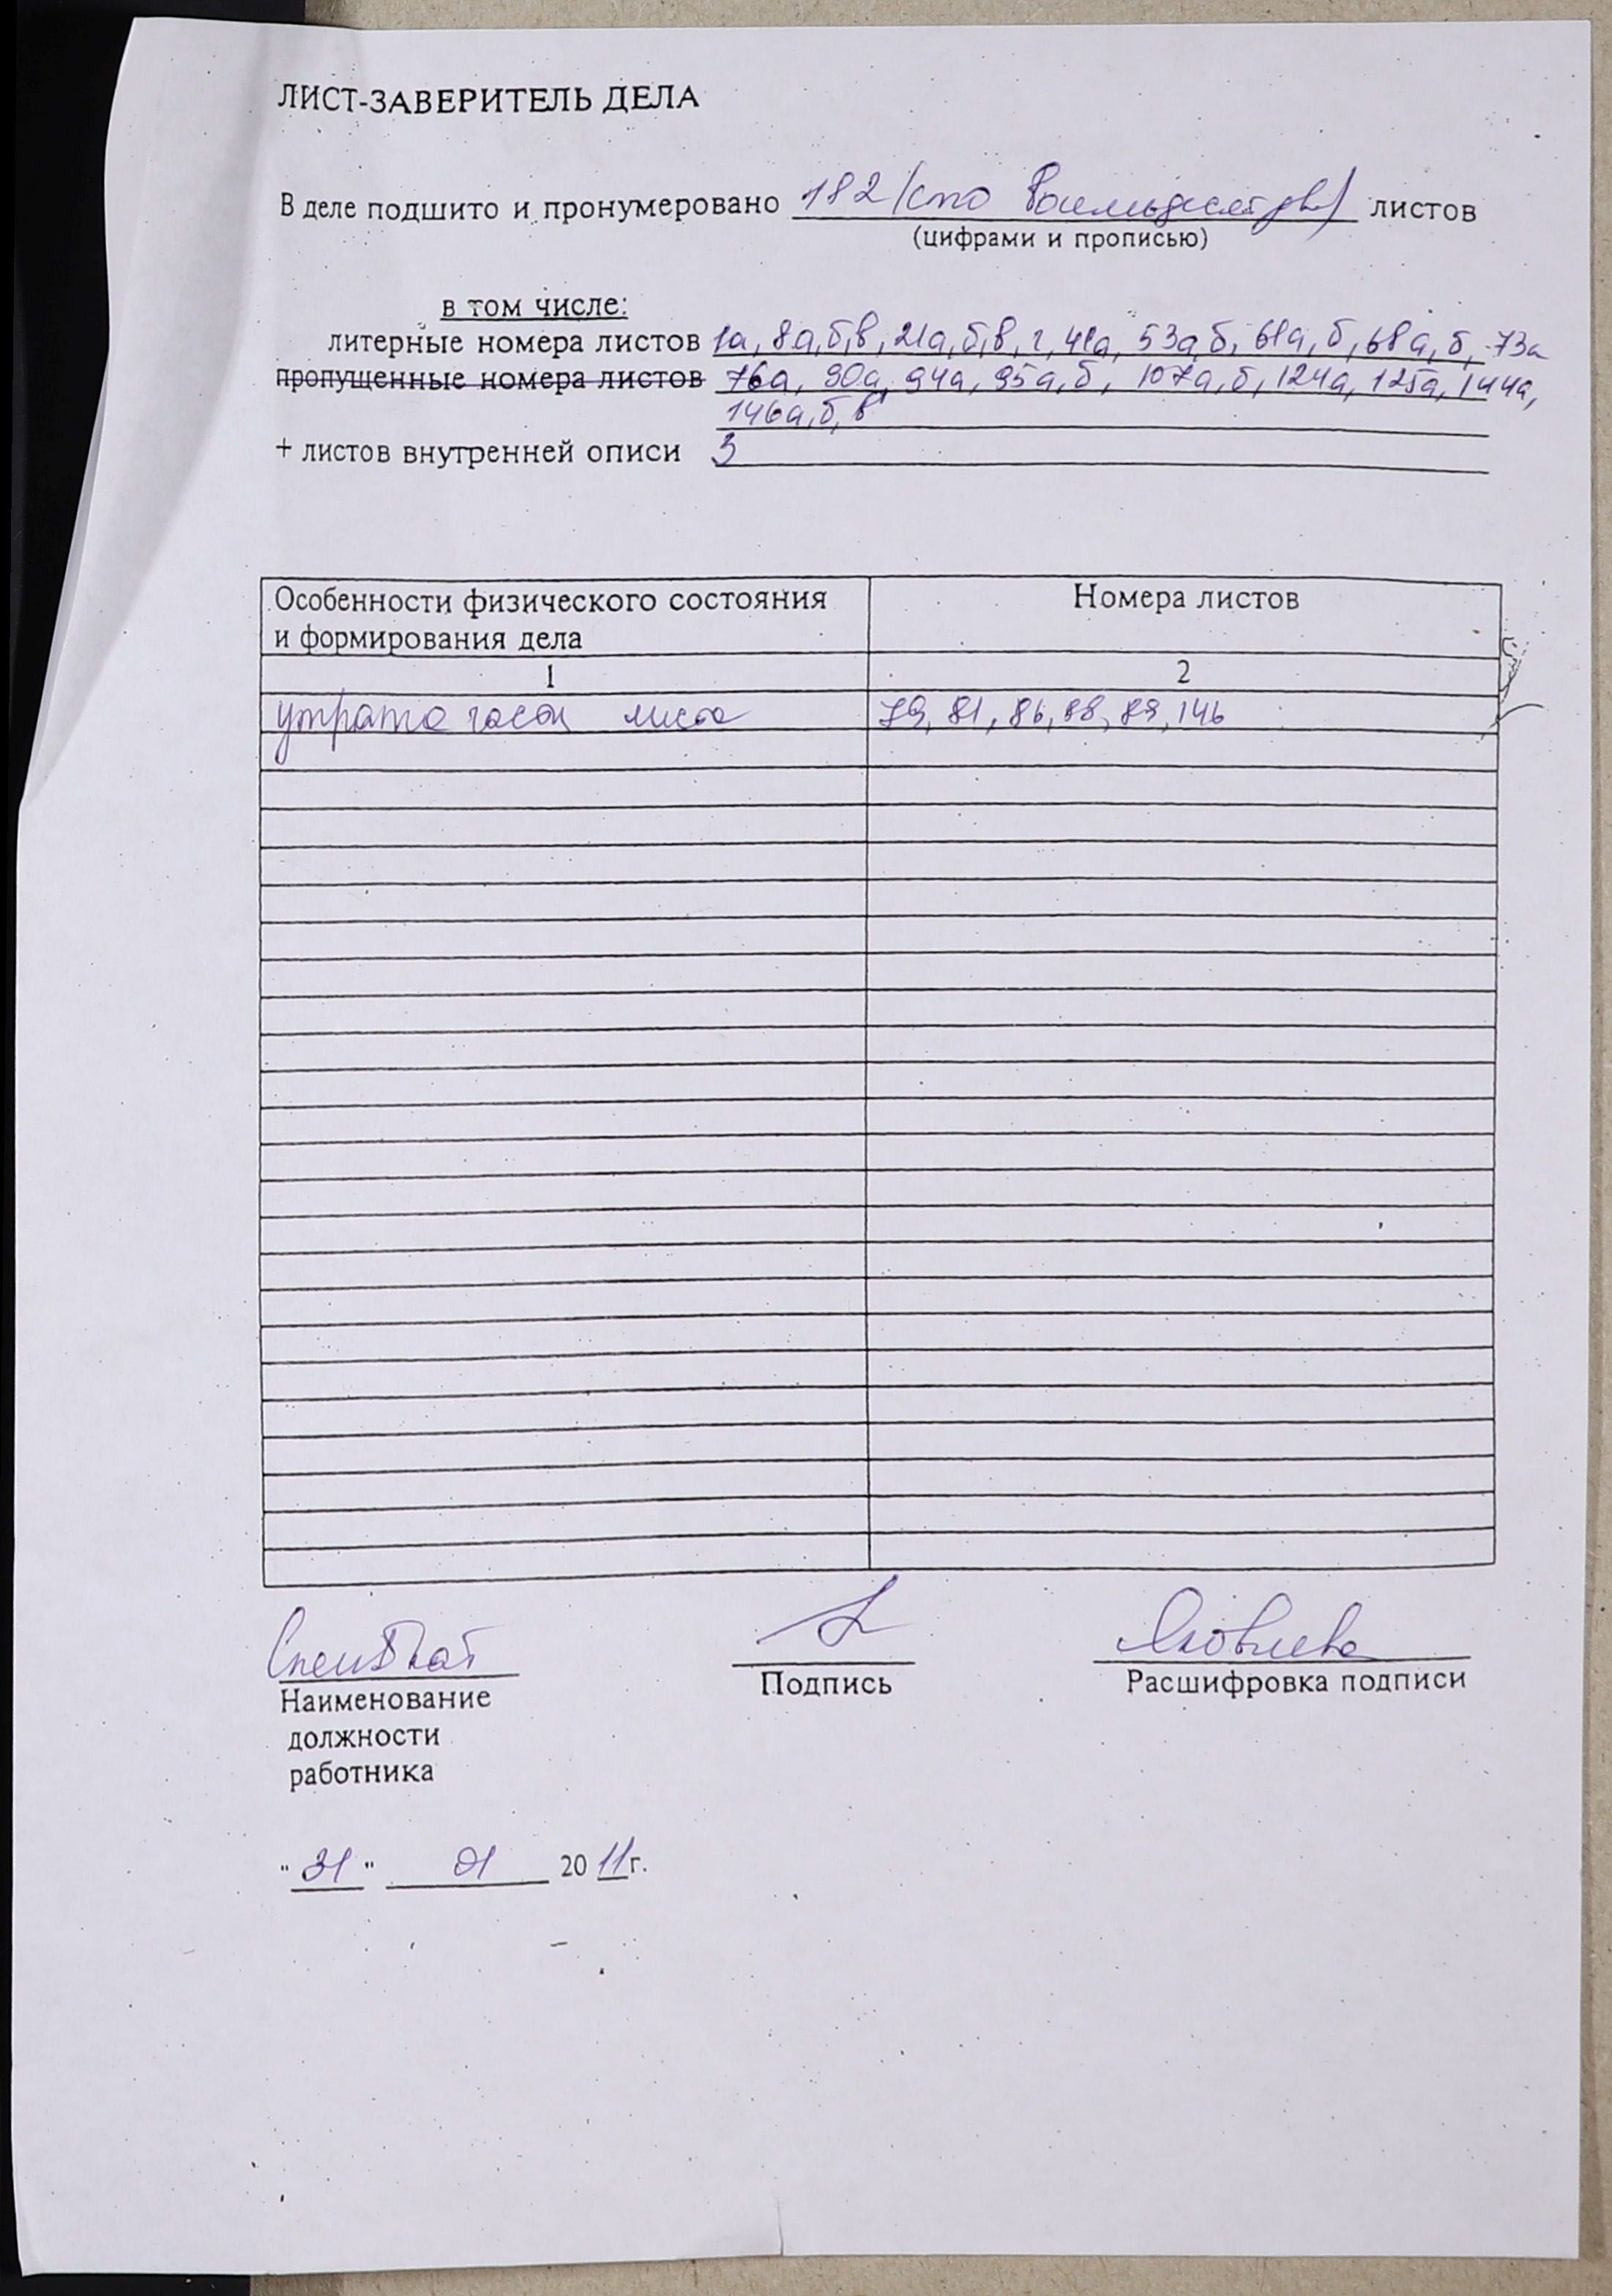 ЛИСТ-ЗАВЕРИТЕЛЬ ДЕЛА
В деле подшито и пронумеровано 182 (сто восемьдесят два) листов
(цифрами и прописью)
в том числе:
литерные номера листов 1а, 8а,б,в, 21а,б,в,г, 41а, 53а,б, 61а,б, 68а,б, 73а
пропущенные номера листов 76а, 90а, 94а, 95а,б, 107а,б, 124а, 125а, 144а,
146а,б,в
+ листов внутренней описи 3
Особенности физического состояния Номера листов
и формирования дела
1 2
утрата части листа 79, 81, 86, 88, 89, 146
Яковлева
Подпись Расшифровка подписи
Наименование
должности
работника
"31" 01 2011г.